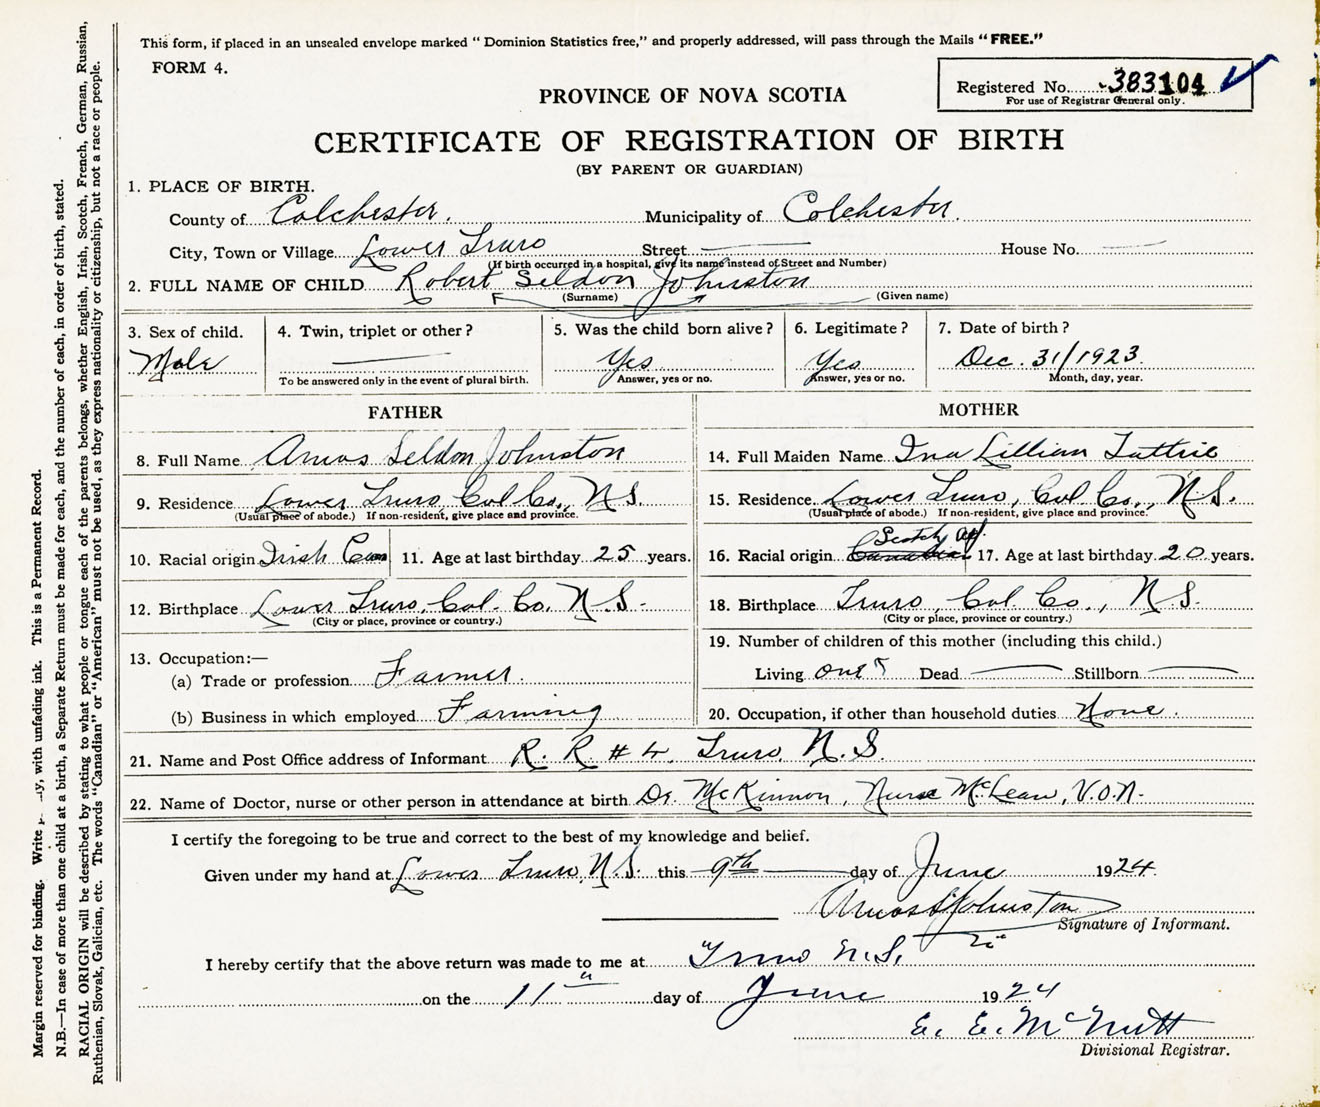 This form, if placed in an unsealed envelope marked “ Dominion Statistics free,” and properly addressed, will pass through the Mails “ FREE.”
FORM 4.
Registered No. 383104
For use of Registrar General only.
PROVINCE OF NOVA SCOTIA
CERTIFICATE OF REGISTRATION OF BIRTH
(BY PARENT OR GUARDIAN)
1. PLACE OF BIRTH.
County of Colchester. Municipality of Colchester.
City, Town or Village Lower Truro Street House No.
(If birth occurred in a hospital, give its name instead of Street and Number)
2. FULL NAME OF CHILD Robert Seldon Johnston
(Surname) (Given name)
3. Sex of child. 4. Twin, triplet or other? 5. Was the child born alive? 6. Legitimate? 7. Date of birth?
Male Yes Yes Dec. 31/1923.
To be answered only in the event of plural birth. Answer, yes or no. Answer, yes or no. Month, day, year.
FATHER MOTHER
8. Full Name Amos Seldon Johnston 14. Full Maiden Name Ina Lillian Tattrie
9. Residence Lower Truro, Col Co., N.S. 15. Residence Lower Truro, Col Co., N.S.
(Usual place of abode.) If non-resident, give place and province. (Usual place of abode.) If non-resident, give place and province.
10. Racial origin Irish Can 11. Age at last birthday 25 years. 16. Racial origin Scotch Canadian 17. Age at last birthday 20 years.
12. Birthplace Lower Truro, Col. Co. N.S. 18. Birthplace Truro, Col. Co., N.S.
(City or place, province or country.) (City or place, province or country.)
19. Number of children of this mother (including this child.)
13. Occupation:—
(a) Trade or profession Farmer. Living one Dead Stillborn
(b) Business in which employed Farming 20. Occupation, if other than household duties None.
21. Name and Post Office address of Informant R. R # 4, Truro, N.S.
22. Name of Doctor, nurse or other person in attendance at birth Dr. McKinnon, Nurse McLean, V.O.N.
I certify the foregoing to be true and correct to the best of my knowledge and belief.
Given under my hand at Lower Truro, N.S. this 9th day of June 1924.
Amos S Johnston
Signature of Informant.
I hereby certify that the above return was made to me at Truro N.S.
on the 11" day of June 1924
E. E. McNutt
Divisional Registrar.
Margin reserved for binding. Write with unfading ink. This is a Permanent Record.
N.B.—In case of more than one child at a birth, a Separate Return must be made for each, and the number of each, in order of birth, stated.
RACIAL ORIGIN will be described by stating to what people or tongue each of the parents belongs, whether English, Irish, Scotch, French, German, Russian,
Ruthenian, Slovak, Galician, etc. The words “Canadian” or “American” must not be used, as they express nationality or citizenship, but not a race or people.